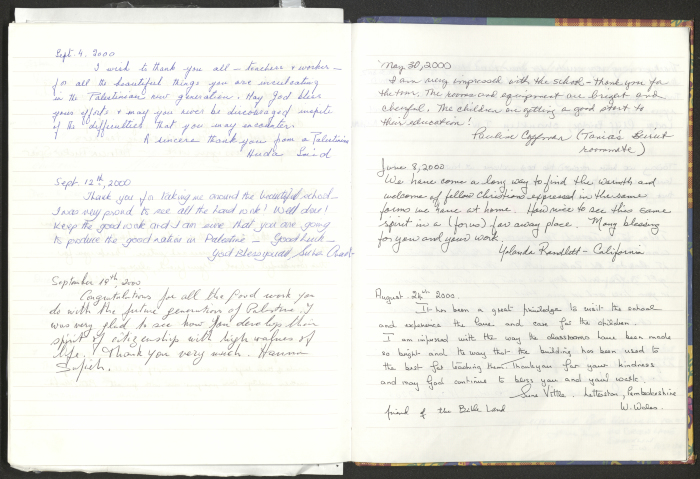 Sept. 4, 2000
I wish to thank you all - teachers + worker -
for all the beautiful things you are inculcating
in the Palestinian new generation. May God bless
your efforts + may you never be discouraged inspite
of the difficulties that you may encounter.
A sincere thank you from a Palestinian
Huda
Sept. 12th, 2000
Thank you for taking me around the beautiful school -
I was very proud to see all the hand work! Well done!
Keep the good work and I am sure that you are going
to produce the good nation in Palestine - Good luck -
God bless you all Suha
September 19th, 2000
Congratulations for all the good work you
do with the future generation of Palestine. I
was very glad to see how you develop their
spirit of citizenship with high values of
life. Thank you very much. Hanna
May 30, 2000
I am very impressed with the school - thank you for
the tour. The rooms and equipment are bright and
cheerful. The children are getting a good start to
their education!
Pauline Coffman (Tania's Beirut
roommate)
June 8, 2000
We have come a long way to find the warmth and
welcome of fellow Christians expressed in the same
forms we have at home. How nice to see this same
spirit in a (for us) far away place. Many blessings
for you and your work.
Yolanda - California
August 24th 2000.
It has been a great priviledge to visit the school
and experience the love and care for the children.
I am impressed with the way the classrooms have been made
so bright and the way that the building has been used to
the best for teaching them. Thankyou for your kindness
and may God continue to bless you and your work.
June Vittle. Letterston, Pembrokeshire
friend of the Bible Land W. Wales.